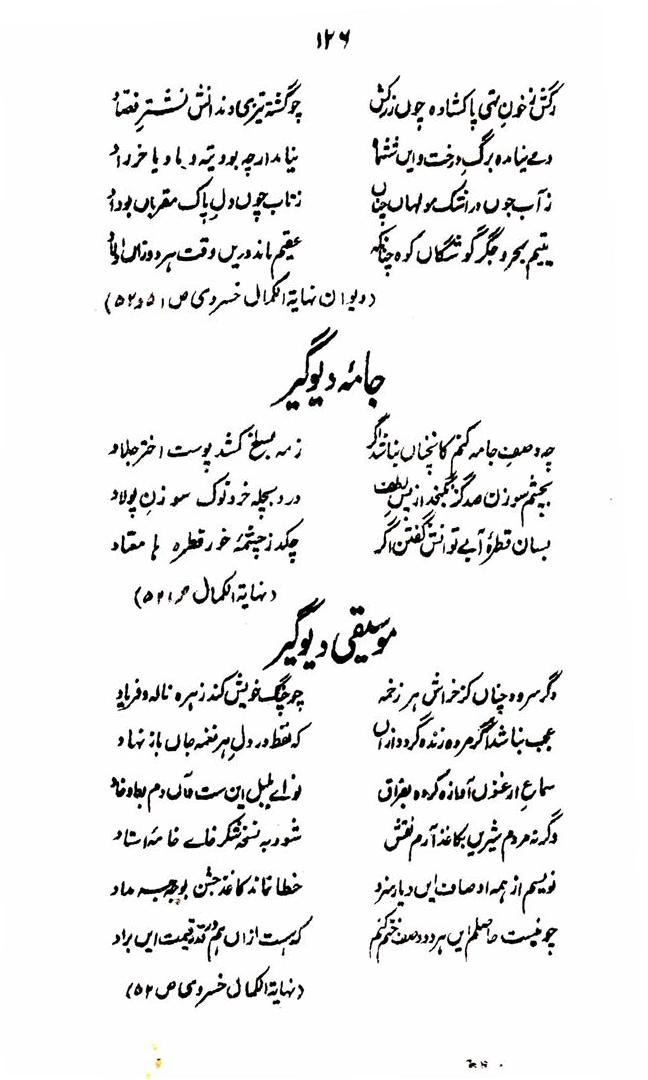 ۱۲۶
رگش ز خون تهی پاکشاده چوں زرکش چو گشته تیزی دندانش نشتر فصاد
دے نیامده برگ درخت وایں ششها نیامد ارچه بود یته و با و با خرداد
ز آب جوں در اشک مولهاں چناں ز تاب چوں دل پاک مقرباں بوداد
یتیم بحر و جگر گوشگاں کوه چنانکه عقیم ماند دریں وقت هر دو زاں
(دیوان نهایة الکمال خسروی ص ۵۱ و ۵۲)
جامهٔ دیوگیر
چه وصف جامه کنم کانچناں نباشد اگر ز مه بمسلخ کشد پوست اختر جلاد
بچشم سوزن صد گز بگنجد از پس لطف درو بچله خرد نوک سوزن پولاد
بسان قطرهٔ آبے توانش گفتن اگر چکد ز چشمهٔ خور قطره ها معتاد
(نهایة الکمال ص ۵۲)
موسیقی دیوگیر
دگر سرود چناں کز خراش هر زخمه چو چنگ خویش کند زهره ناله و فریاد
عجب نباشد اگر مرده زنده گردد ازاں که نقط در دل هر نغمه جاں باز نهاد
سماع ارغنوں آمازه کرده بفراق نوائے بلبل ایں ست دماں دم بعاد
دگر نه مردم شیریں بکاغذ آرم نقش شود به نسخه شکر خاے خامهٔ استاد
نویسم از همه اوصاف ایں دیار منزد خطا نماند کاغذ حبش بوجه مداد
چو نیست حاصلم ایں هر دو وصف ختم کنم که هست ازاں هم قدر قیمت ایں براد
(نهایة الکمال خسروی ص ۵۲)